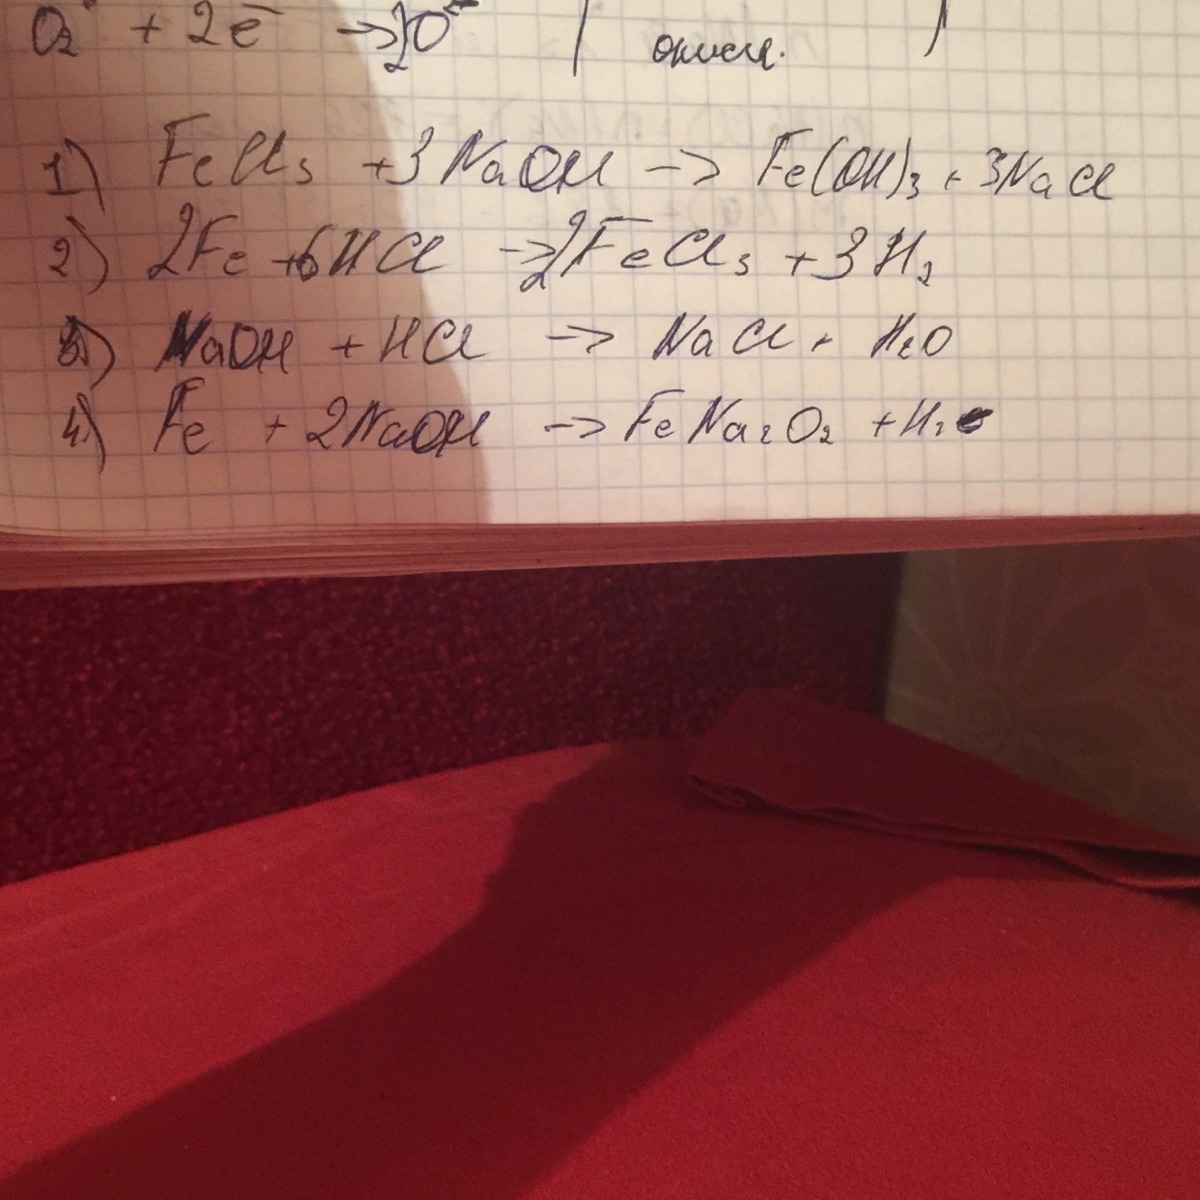 O₂ + 2e⁻ → 2O⁻
окисл.
1) FeCl₃ + 3NaOH → Fe(OH)₃ + 3NaCl
2) 2Fe + 6HCl → 2FeCl₃ + 3H₂
3) NaOH + HCl → NaCl + H₂O
4) Fe + 2NaOH → FeNa₂O₂ + H₂